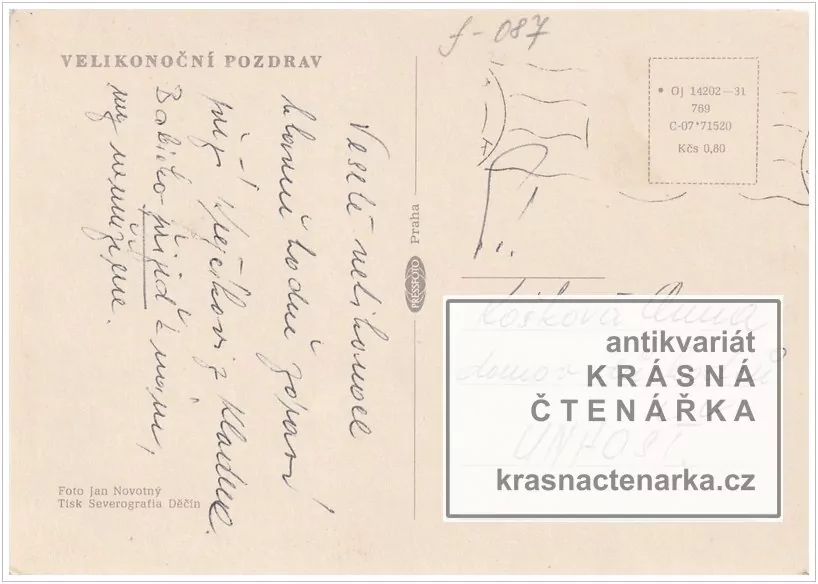 f-087
VELIKONOČNÍ POZDRAV
Veselé velikonoce
hlavně hodně zdraví
přejí Krejčíkovi z Kladna.
Babičko přijď k nám,
my nemůžeme.
Praha
PRESSFOTO
Oj 14202—31
769
C-07*71520
Kčs 0,80
Košková Anna
domov
UNHOŠŤ
antikvariát
KRÁSNÁ
ČTENÁŘKA
krasnactenarka.cz
Foto Jan Novotný
Tisk Severografia Děčín